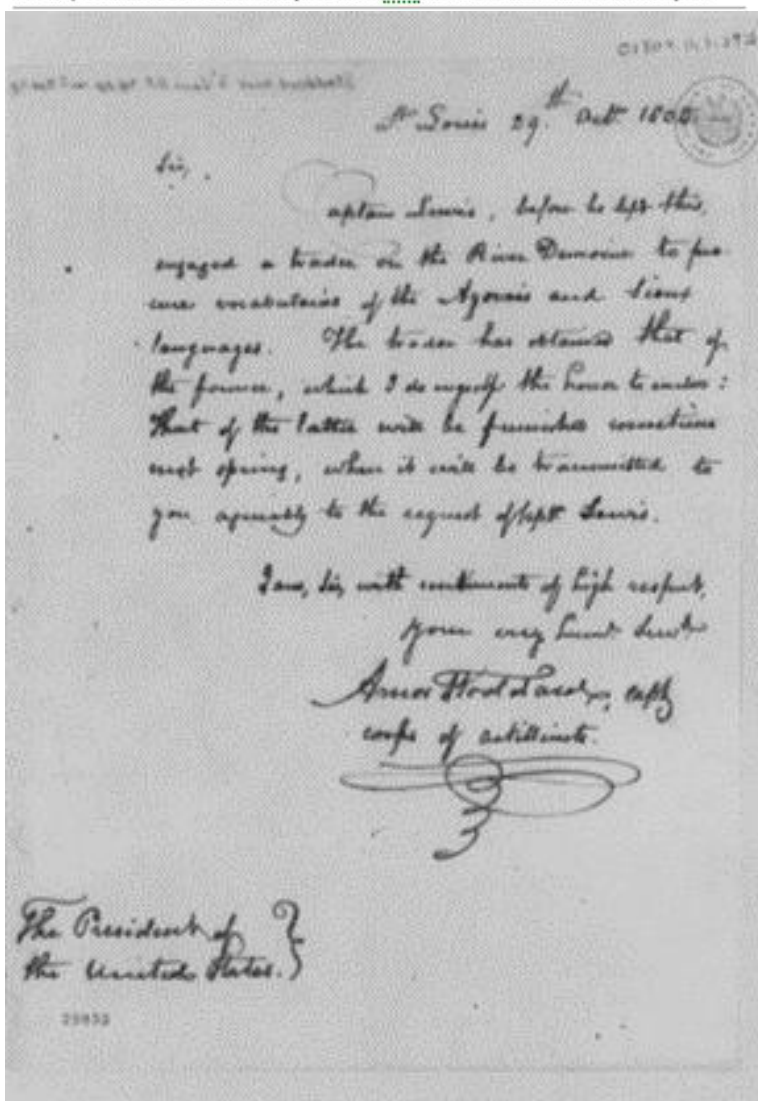 St Louis 29th Octr 180
Sir,
Captain Lewis, before he left this,
engaged a trader on the River Demoine to pro-
cure vocabularies of the Ayouais and Sioux
languages. The trader has obtained that of
the former, which I do myself the honor to enclose:
That of the latter will be furnished sometime
next spring, when it will be transmitted to
you agreeably to the request of Capt. Lewis.
I am, Sir, with sentiments of high respect,
your very humb Servt
Amos Stoddard, capt
corps of artillerists.
The President of
the United States.